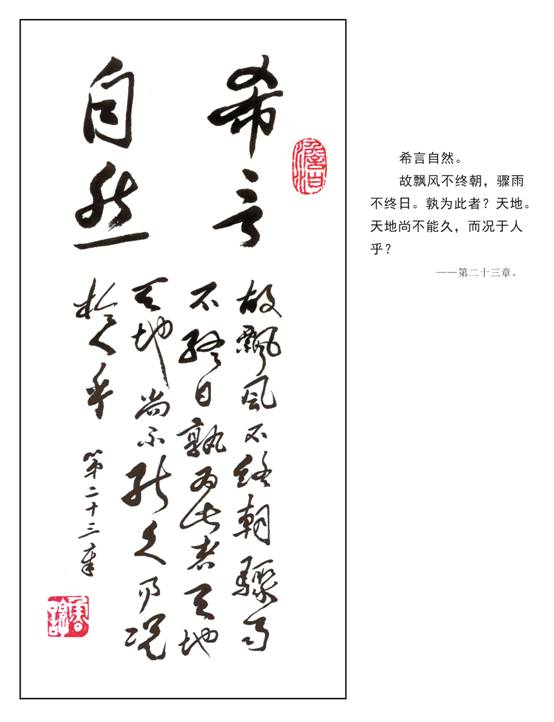 希言
自然
故飘风不终朝骤雨
不终日孰为此者天地
天地尚不能久而况
於人乎
第二十三章
希言自然。
故飘风不终朝，骤雨
不终日。孰为此者？天地。
天地尚不能久，而况于人
乎？
——第二十三章。